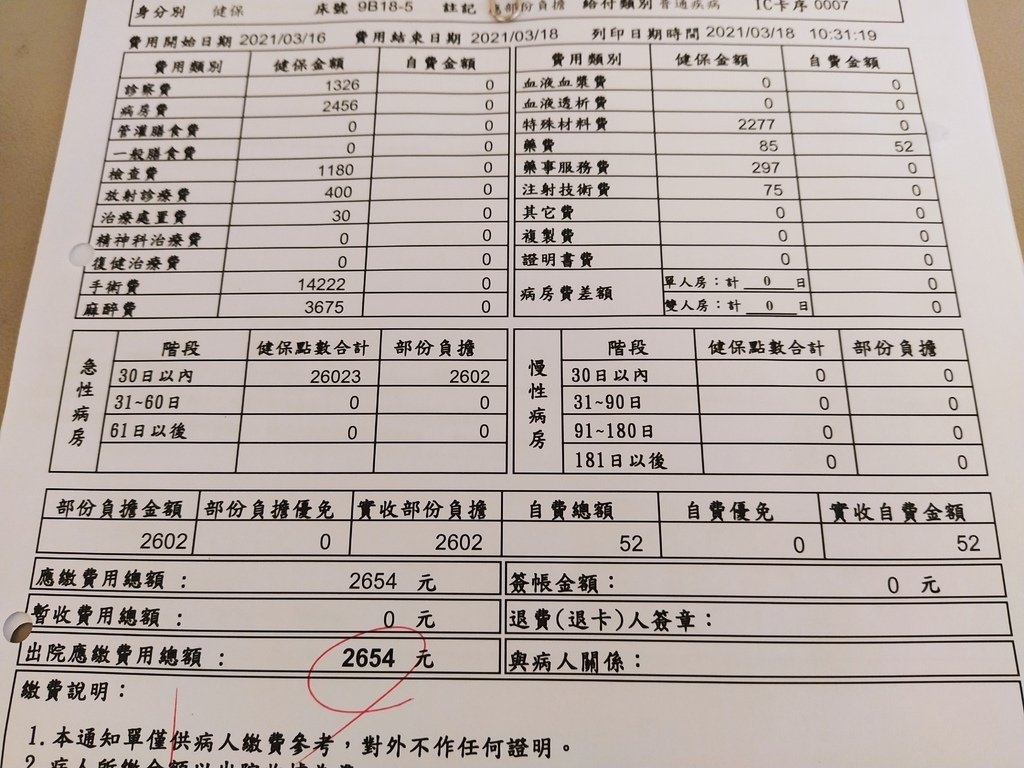 身分別 健保 床號 9B18-5 註記 部份負擔 給付類別 普通疾病 IC卡序 0007
費用開始日期 2021/03/16 費用結束日期 2021/03/18 列印日期時間 2021/03/18 10:31:19
費用類別 健保金額 自費金額 費用類別 健保金額 自費金額
診察費 1326 0 血液血漿費 0 0
病房費 2456 0 血液透析費 0 0
管灌膳食費 0 0 特殊材料費 2277 0
一般膳食費 0 0 藥費 85 52
檢查費 1180 0 藥事服務費 297 0
放射診療費 400 0 注射技術費 75 0
治療處置費 30 0 其它費 0 0
精神科治療費 0 0 複製費 0 0
復健治療費 0 0 證明書費 0 0
手術費 14222 0 病房費差額 單人房：計 0 日 0
麻醉費 3675 0 雙人房：計 0 日 0
急性病房 階段 健保點數合計 部份負擔 慢性病房 階段 健保點數合計 部份負擔
30日以內 26023 2602 30日以內 0 0
31~60日 0 0 31~90日 0 0
61日以後 0 0 91~180日 0 0
181日以後 0 0
部份負擔金額 部份負擔優免 實收部份負擔 自費總額 自費優免 實收自費金額
2602 0 2602 52 0 52
應繳費用總額： 2654 元 簽帳金額： 0 元
暫收費用總額： 0 元 退費(退卡)人簽章：
出院應繳費用總額： 2654 元 與病人關係：
繳費說明：
1.本通知單僅供病人繳費參考，對外不作任何證明。